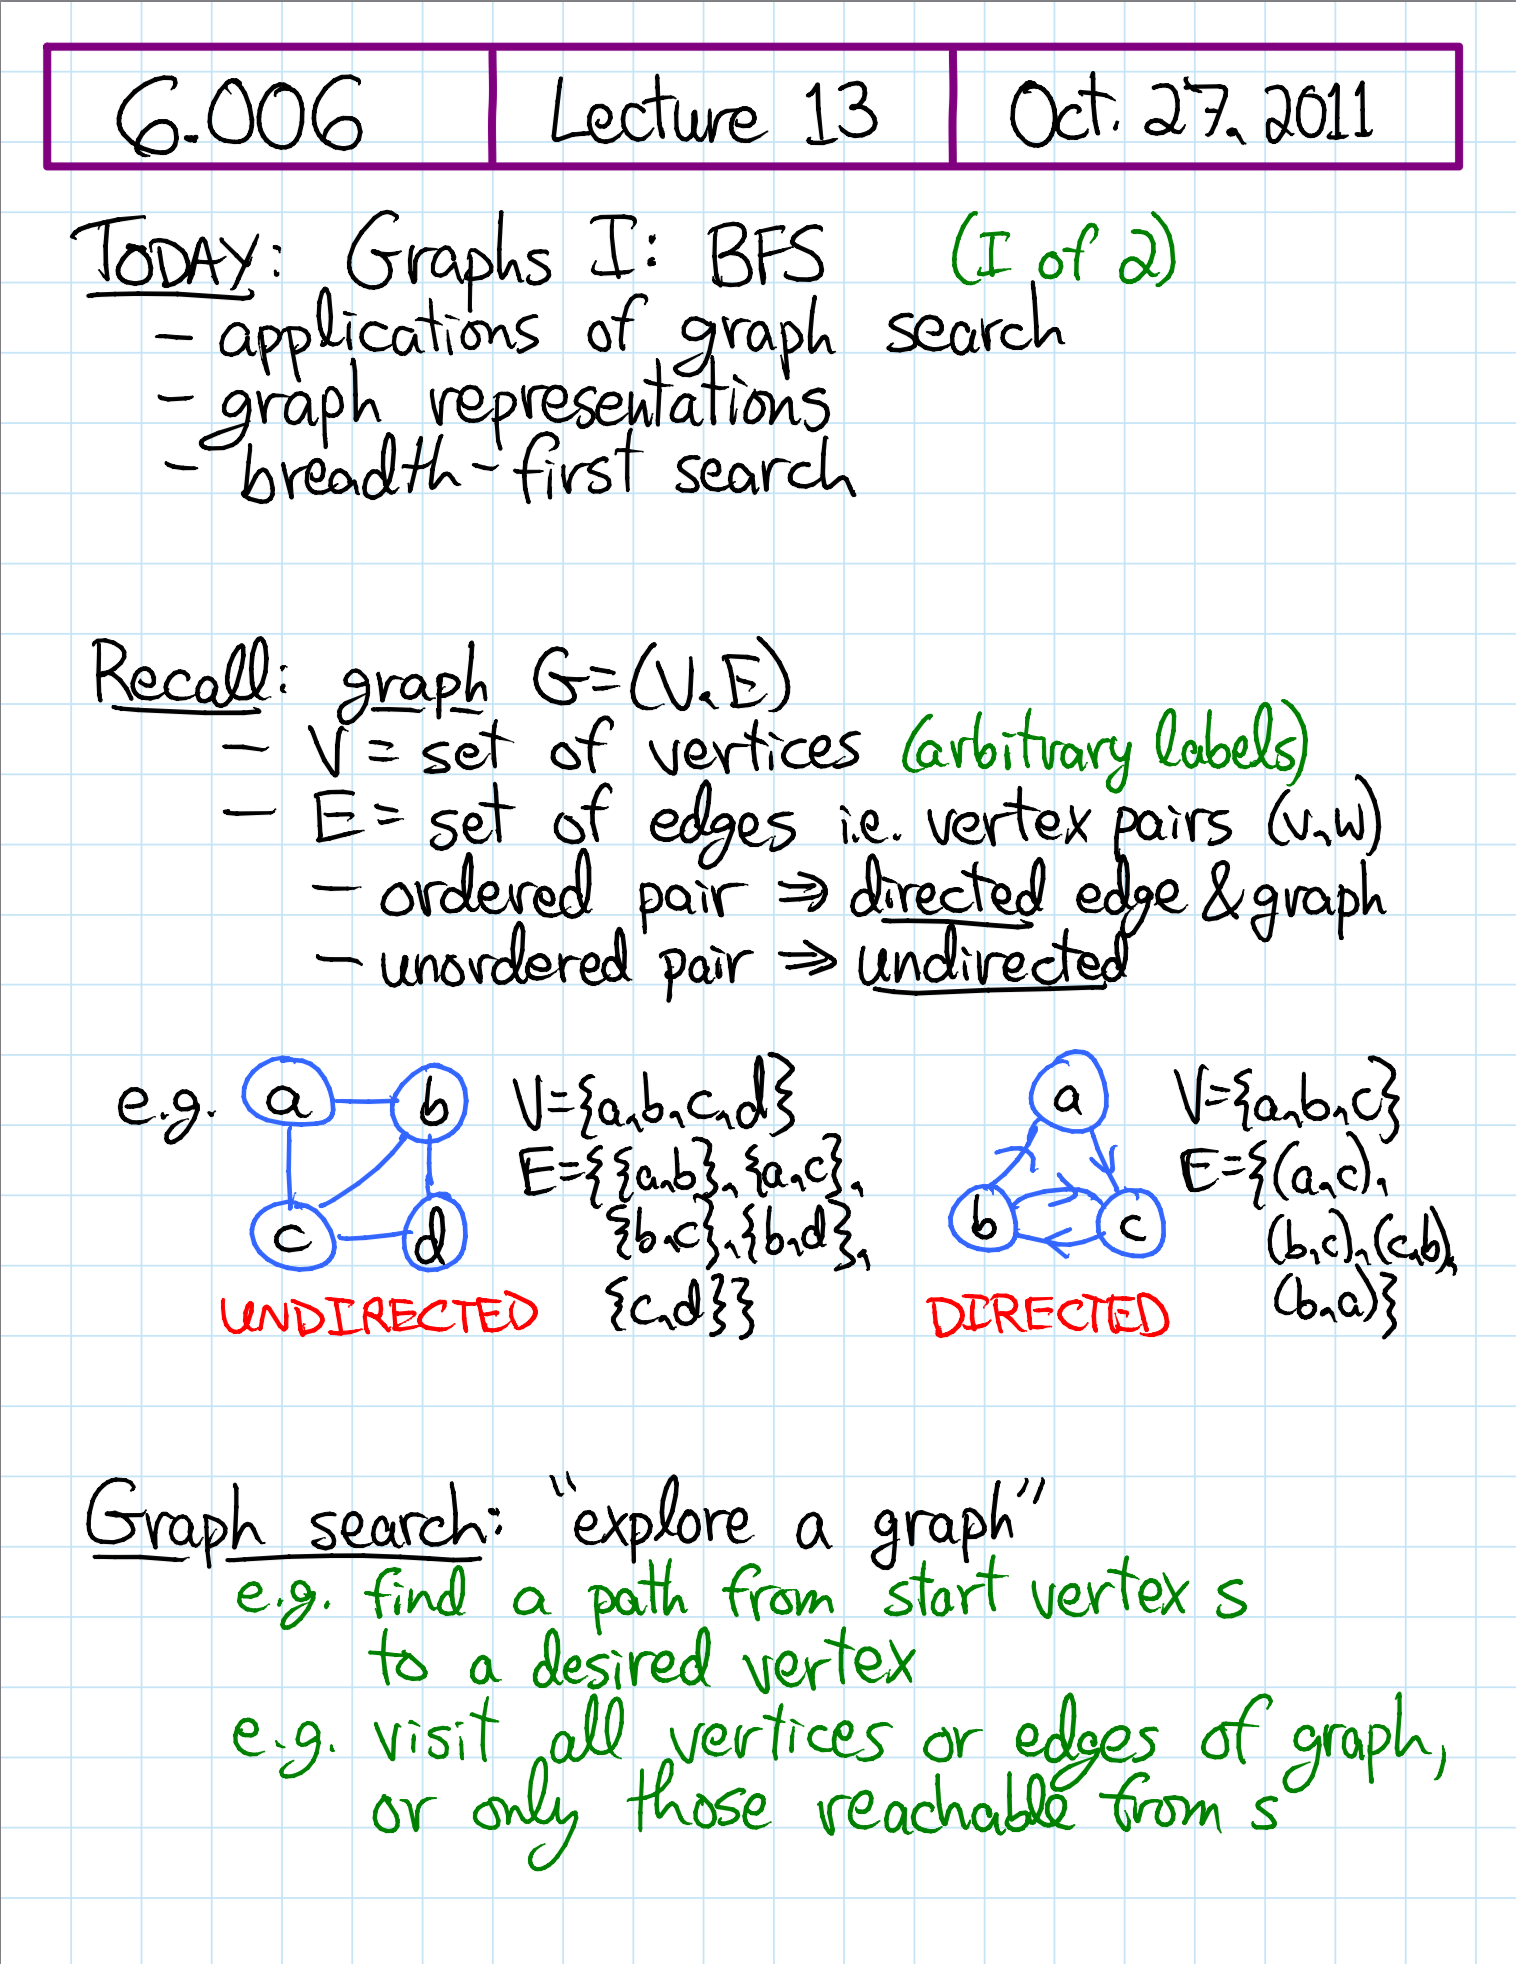 6.006 Lecture 13 Oct. 27, 2011
TODAY: Graphs I: BFS (I of 2)
- applications of graph search
- graph representations
- breadth-first search
Recall: graph G=(V,E)
- V = set of vertices (arbitrary labels)
- E = set of edges i.e. vertex pairs (v,w)
- ordered pair ⇒ directed edge & graph
- unordered pair ⇒ undirected
e.g.
a
b
c
d
UNDIRECTED
V={a,b,c,d}
E={{a,b},{a,c},
{b,c},{b,d},
{c,d}}
a
b
c
DIRECTED
V={a,b,c}
E={(a,c),
(b,c),(c,b),
(b,a)}
Graph search: "explore a graph"
e.g. find a path from start vertex s
to a desired vertex
e.g. visit all vertices or edges of graph,
or only those reachable from s